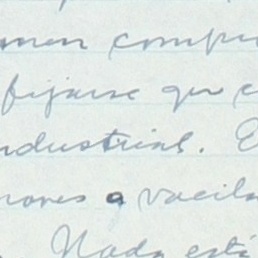 men compr
fijarse qu e
ndustrial. E
nores a vacila
. Nada está